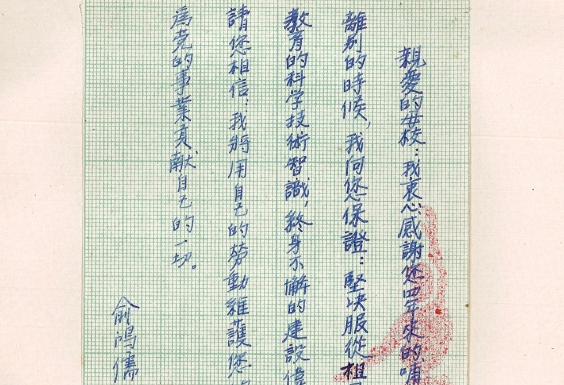 親愛的母校：我衷心感謝您四年來的哺
離别的時候，我向您保證：堅决服從祖
教育的科学技術智識，終身不懈的建設偉
請您相信：我將用自己的勞動維護您
為党的事業貢献自己的一切。
俞鴻儒